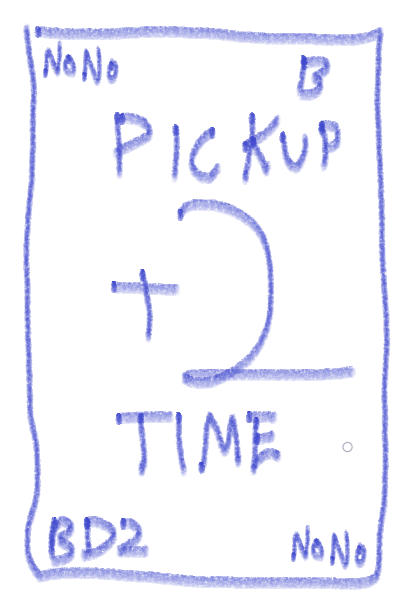 NoNo B
PICKUP
+2
TIME
BD2 NoNo